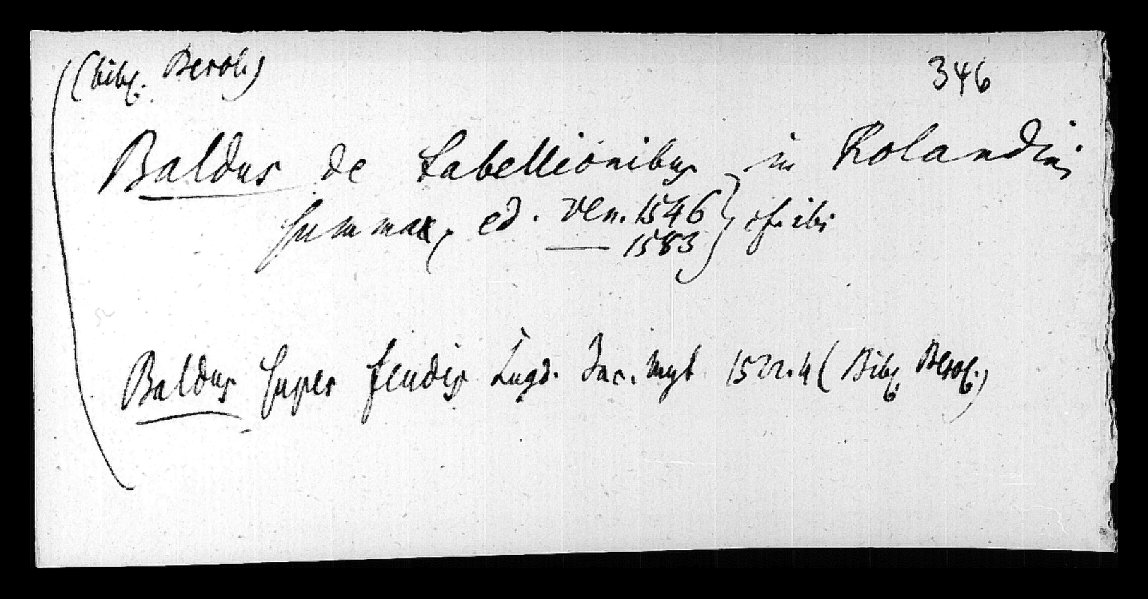 (bibl. Berol.)
346
Baldus de tabellionibus in Rolandini
summa, ed. Ven. 1546 } cf. ibi
—— 1583
Baldus super feudis Lugd. Jac. Myt 1522. 4 (Bibl. Berol.)